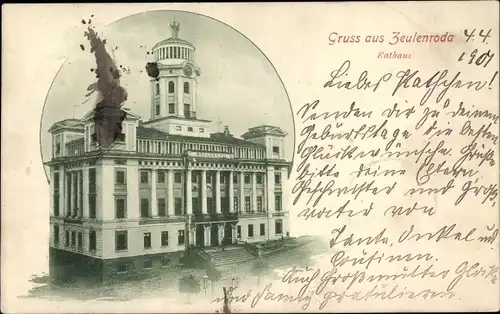 Gruss aus Zeulenroda
Rathaus
4.4.
1901
Liebes Pathchen!
Senden dir zu deinem
Geburtstage die besten
Glückwünsche. Grüße
bitte deine Eltern,
Geschwister und Groß-
vater von
Tante, Onkel und
Cousinen.
Auch Großmutter
und Familie gratulieren.